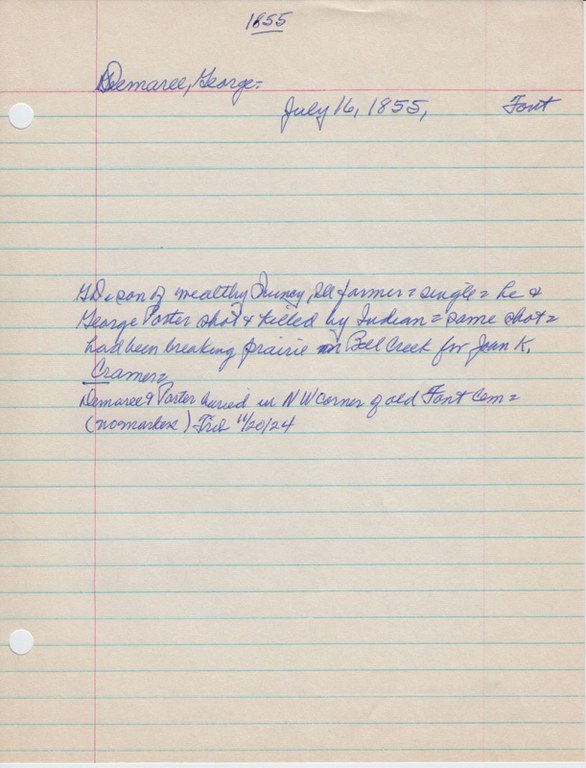 1855
Demaree, George.
July 16, 1855, Font
GD = son of wealthy Quincy, Ill farmer = single = he &
George Porter shot & killed by Indian = same shot =
had been breaking prairie on Bell Creek for John K.
Cramer =
Demaree & Porter buried in NW corner of old Font Cem =
(no marker) Trib 11/20/24